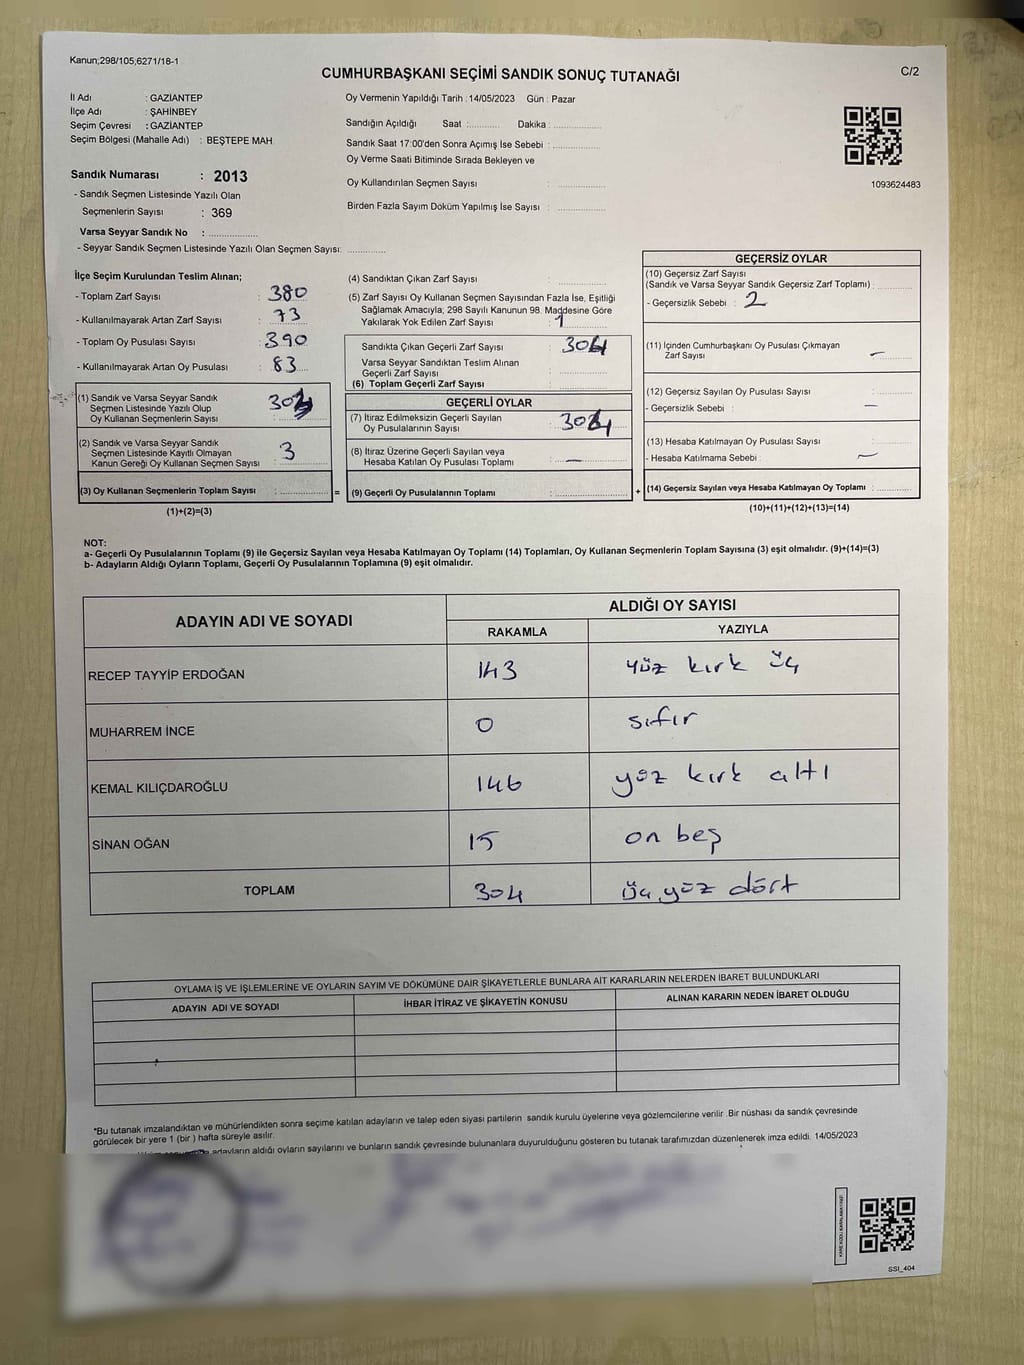 Kanun;298/105,6271/18-1
CUMHURBAŞKANI SEÇİMİ SANDIK SONUÇ TUTANAĞI
C/2
İl Adı : GAZİANTEP
İlçe Adı : ŞAHİNBEY
Seçim Çevresi : GAZİANTEP
Seçim Bölgesi (Mahalle Adı) : BEŞTEPE MAH
Oy Vermenin Yapıldığı Tarih : 14/05/2023 Gün : Pazar
Sandığın Açıldığı Saat :.......... Dakika :..............
Sandık Saat 17:00'den Sonra Açımış İse Sebebi :..............
Oy Verme Saati Bitiminde Sırada Bekleyen ve
Oy Kullandırılan Seçmen Sayısı : ..............
Birden Fazla Sayım Döküm Yapılmış İse Sayısı : ..............
1093624483
Sandık Numarası : 2013
- Sandık Seçmen Listesinde Yazılı Olan
Seçmenlerin Sayısı : 369
Varsa Seyyar Sandık No : ..............
- Seyyar Sandık Seçmen Listesinde Yazılı Olan Seçmen Sayısı: ..............
İlçe Seçim Kurulundan Teslim Alınan;
- Toplam Zarf Sayısı : 380
- Kullanılmayarak Artan Zarf Sayısı : 73
- Toplam Oy Pusulası Sayısı : 390
- Kullanılmayarak Artan Oy Pusulası : 83
(1) Sandık ve Varsa Seyyar Sandık
Seçmen Listesinde Yazılı Olup
Oy Kullanan Seçmenlerin Sayısı :
(2) Sandık ve Varsa Seyyar Sandık
Seçmen Listesinde Kayıtlı Olmayan
Kanun Gereği Oy Kullanan Seçmen Sayısı : 3
(3) Oy Kullanan Seçmenlerin Toplam Sayısı : ..............
=
(1)+(2)=(3)
(4) Sandıktan Çıkan Zarf Sayısı : ..............
(5) Zarf Sayısı Oy Kullanan Seçmen Sayısından Fazla İse, Eşitliği
Sağlamak Amacıyla; 298 Sayılı Kanunun 98. Maddesine Göre
Yakılarak Yok Edilen Zarf Sayısı : 1
Sandıkta Çıkan Geçerli Zarf Sayısı : 304
Varsa Seyyar Sandıktan Teslim Alınan
Geçerli Zarf Sayısı : ..............
(6) Toplam Geçerli Zarf Sayısı : ..............
GEÇERLİ OYLAR
(7) İtiraz Edilmeksizin Geçerli Sayılan
Oy Pusulalarının Sayısı : 304
(8) İtiraz Üzerine Geçerli Sayılan veya
Hesaba Katılan Oy Pusulası Toplamı : —
(9) Geçerli Oy Pusulalarının Toplamı : ..............
+
GEÇERSİZ OYLAR
(10) Geçersiz Zarf Sayısı
(Sandık ve Varsa Seyyar Sandık Geçersiz Zarf Toplamı) : ..............
- Geçersizlik Sebebi : 2
(11) İçinden Cumhurbaşkanı Oy Pusulası Çıkmayan
Zarf Sayısı : —
(12) Geçersiz Sayılan Oy Pusulası Sayısı : ..............
- Geçersizlik Sebebi : —
(13) Hesaba Katılmayan Oy Pusulası Sayısı : ..............
- Hesaba Katılmama Sebebi : —
(14) Geçersiz Sayılan veya Hesaba Katılmayan Oy Toplamı : ..............
(10)+(11)+(12)+(13)=(14)
NOT:
a- Geçerli Oy Pusulalarının Toplamı (9) ile Geçersiz Sayılan veya Hesaba Katılmayan Oy Toplamı (14) Toplamları, Oy Kullanan Seçmenlerin Toplam Sayısına (3) eşit olmalıdır. (9)+(14)=(3)
b- Adayların Aldığı Oyların Toplamı, Geçerli Oy Pusulalarının Toplamına (9) eşit olmalıdır.
ADAYIN ADI VE SOYADI ALDIĞI OY SAYISI
RAKAMLA YAZIYLA
RECEP TAYYİP ERDOĞAN 143 yüz kırk üç
MUHARREM İNCE 0 sıfır
KEMAL KILIÇDAROĞLU 146 yüz kırk altı
SİNAN OĞAN 15 on beş
TOPLAM 304 üç yüz dört
OYLAMA İŞ VE İŞLEMLERİNE VE OYLARIN SAYIM VE DÖKÜMÜNE DAİR ŞİKAYETLERLE BUNLARA AİT KARARLARIN NELERDEN İBARET BULUNDUKLARI
ADAYIN ADI VE SOYADI İHBAR İTİRAZ VE ŞİKAYETİN KONUSU ALINAN KARARIN NEDEN İBARET OLDUĞU
*Bu tutanak imzalandıktan ve mühürlendikten sonra seçime katılan adayların ve talep eden siyasi partilerin sandık kurulu üyelerine veya gözlemcilerine verilir .Bir nüshası da sandık çevresinde
görülecek bir yere 1 (bir ) hafta süreyle asılır.
adayların aldığı oyların sayılarını ve bunların sandık çevresinde bulunanlara duyurulduğunu gösteren bu tutanak tarafımızdan düzenlenerek imza edildi. 14/05/2023
SSI_404